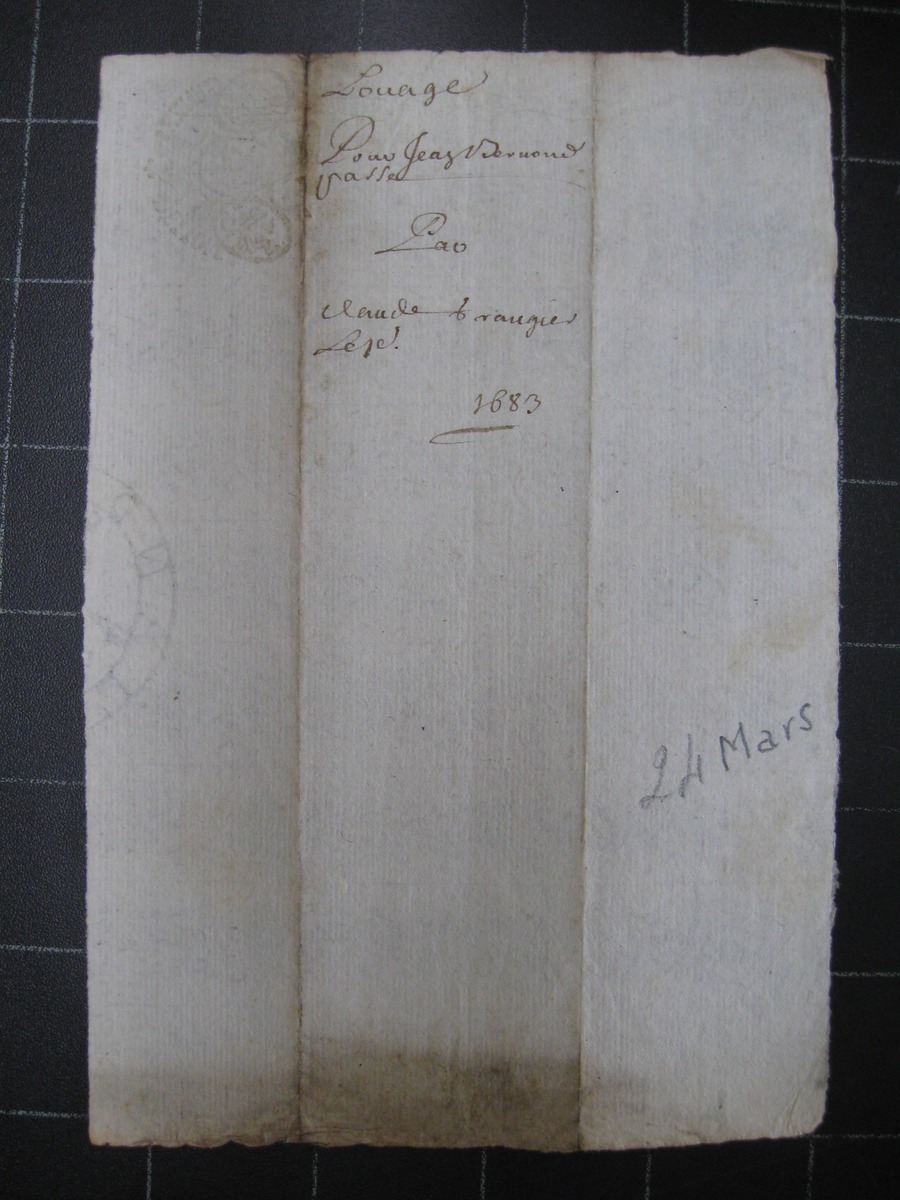 Louage
Pour Jean Bermond
passe
Par
claude brangier
1683
24 Mars